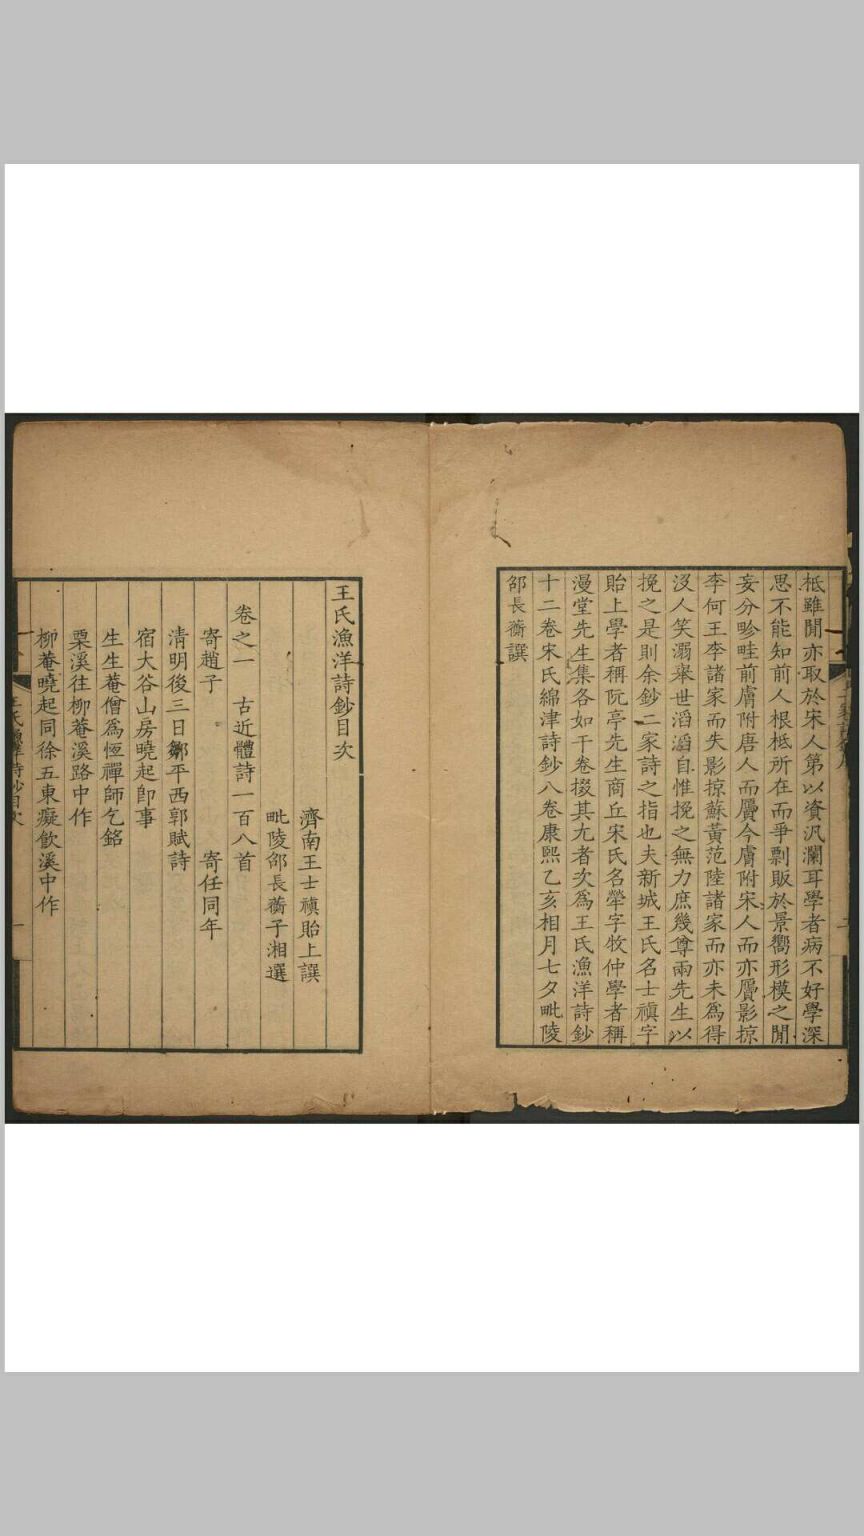 柢雖閒亦取於宋人第以資汎瀾耳學者病不好學深
思不能知前人根柢所在而爭剽販於景嚮形模之閒
妄分畛畦前膚附唐人而贗今膚附宋人而亦贗影掠
李何王李諸家而失影掠蘇黃范陸諸家而亦未爲得
沒人笑溺舉世滔滔自惟挽之無力庶幾尊兩先生以
挽之是則余鈔二家詩之指也夫新城王氏名士禛字
貽上學者稱阮亭先生商丘宋氏名犖字牧仲學者稱
漫堂先生集各如干卷掇其尤者次爲王氏漁洋詩鈔
十二卷宋氏綿津詩鈔八卷康熙乙亥相月七夕毗陵
邵長蘅譔
王氏漁洋詩鈔目次
濟南王士禛貽上譔
毗陵邵長蘅子湘選
卷之一 古近體詩一百八首
寄趙子 寄任同年
清明後三日鄒平西郭賦詩
宿大谷山房曉起卽事
生生菴僧爲恆禪師乞銘
栗溪往柳菴溪路中作
柳菴曉起同徐五東癡飲溪中作
王氏漁洋詩鈔目次
一